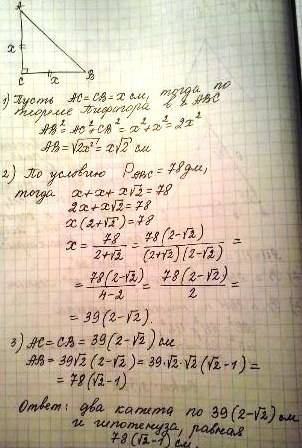 A
x
C
x
B
1) Пусть AC = CB = x см, тогда по
теореме Пифагора в △ ABC
AB² = AC² + CB² = x² + x² = 2x²
AB = √2x² = x√2 см
2) По условию P_ABC = 78 дм,
тогда x + x + x√2 = 78
2x + x√2 = 78
x(2+√2) = 78
x = 78/(2+√2) = 78(2-√2)/((2+√2)(2-√2)) =
= 78(2-√2)/(4-2) = 78(2-√2)/2 =
= 39(2-√2).
3) AC = CB = 39(2-√2) см
AB = 39√2(2-√2) = 39·√2·√2(√2-1) =
= 78(√2-1)
Ответ: два катета по 39(2-√2) см
и гипотенуза, равная
78(√2-1) см.